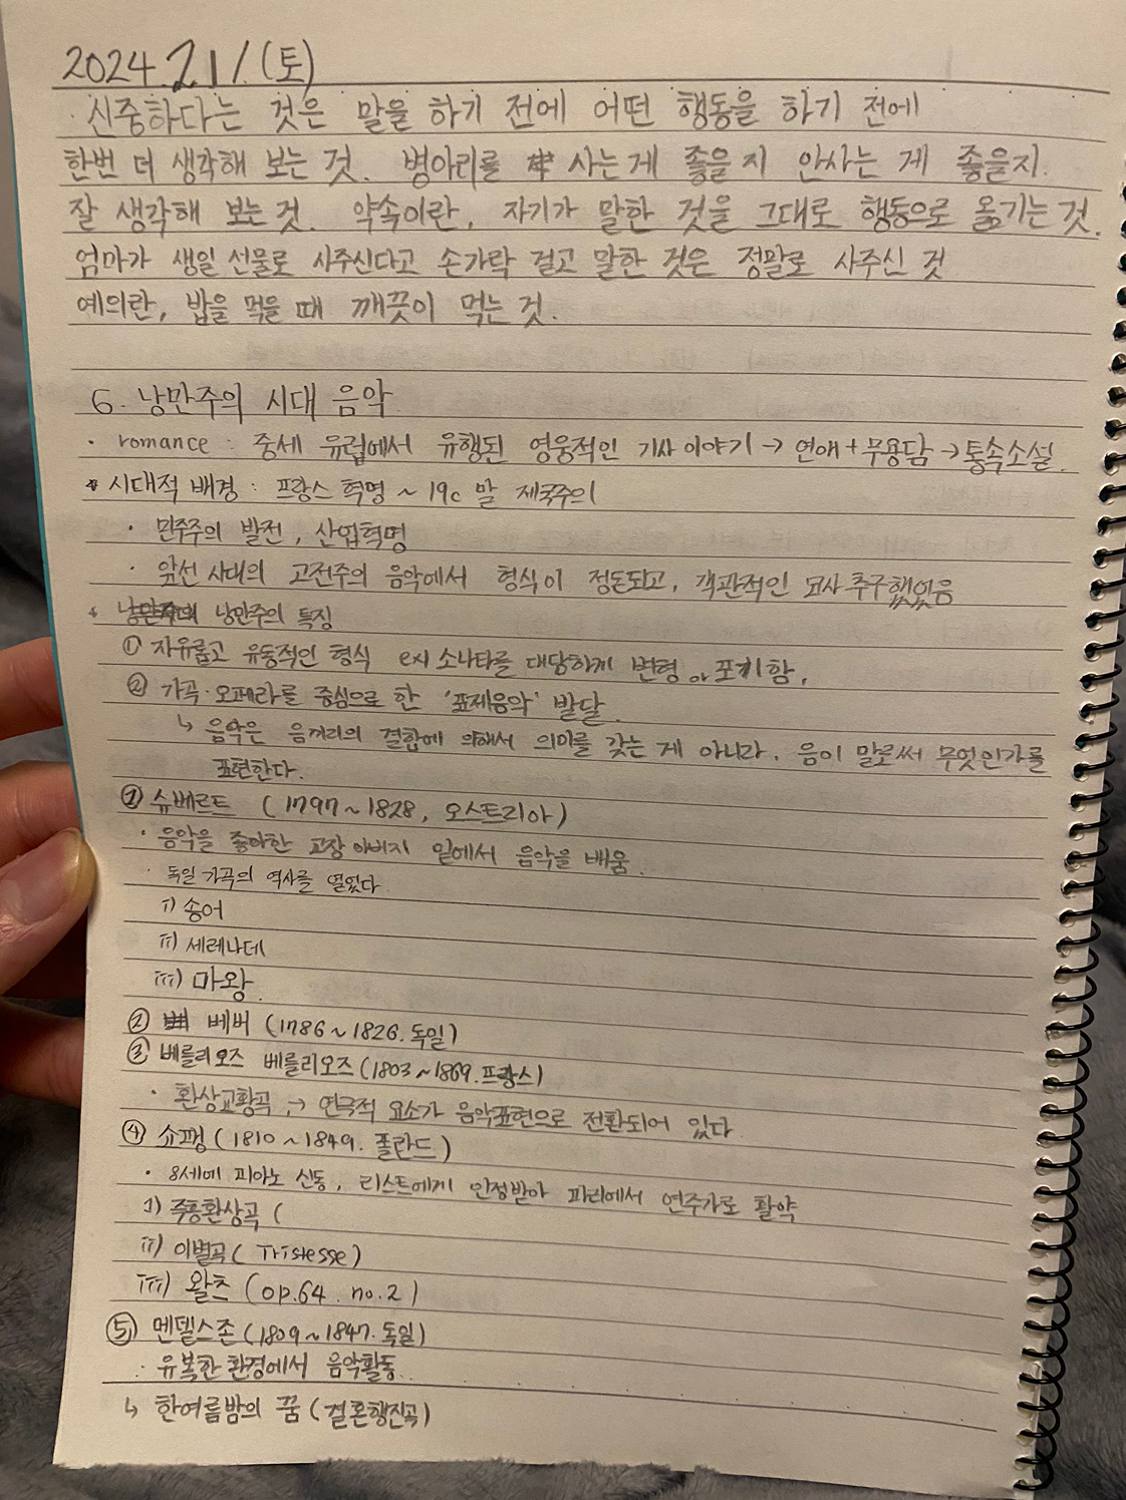 2024.21/.(토)
· 신중하다는 것은 말을 하기 전에 어떤 행동을 하기 전에
한번 더 생각해 보는 것. 병아리를 사는게 좋을지 안사는 게 좋을지.
잘 생각해 보는 것. 약속이란, 자기가 말한 것을 그대로 행동으로 옮기는 것.
엄마가 생일 선물로 사주신다고 손가락 걸고 말한 것은 정말로 사주신 것
예의란, 밥을 먹을 때 깨끗이 먹는 것.
6. 낭만주의 시대 음악
· romance : 중세 유럽에서 유행된 영웅적인 기사 이야기 → 연애+무용담 → 통속소설.
* 시대적 배경 : 프랑스 혁명 ~ 19c 말 제국주의
· 민주주의 발전, 산업혁명
· 앞선 시대의 고전주의 음악에서 형식이 정돈되고, 객관적인 묘사 추구했었음
* 낭만주의 특징
① 자유롭고 유동적인 형식 ex) 소나타를 대담하게 변형 or 포기함.
② 가곡·오페라를 중심으로 한 '표제음악' 발달.
↳ 음악은 음끼리의 결합에 의해서 의미를 갖는 게 아니라, 음이 말로써 무엇인가를
표현한다.
① 슈베르트 (1797~1828, 오스트리아)
· 음악을 좋아한 교장 아버지 밑에서 음악을 배움.
· 독일 가곡의 역사를 열었다.
i) 송어
ii) 세레나데
iii) 마왕.
② 베버 (1786~1826. 독일)
③ 베를리오즈 베를리오즈 (1803~1869. 프랑스)
· 환상교향곡 → 연극적 요소가 음악표현으로 전환되어 있다.
④ 쇼팽 (1810~1849. 폴란드)
· 8세에 피아노 신동, 리스트에게 인정받아 파리에서 연주가로 활약
i) 즉흥환상곡 (
ii) 이별곡 ( Tristesse)
iii) 왈츠 (op.64. no.2)
⑤ 멘델스존 (1809~1847. 독일)
· 유복한 환경에서 음악활동.
↳ 한여름밤의 꿈 (결혼행진곡)